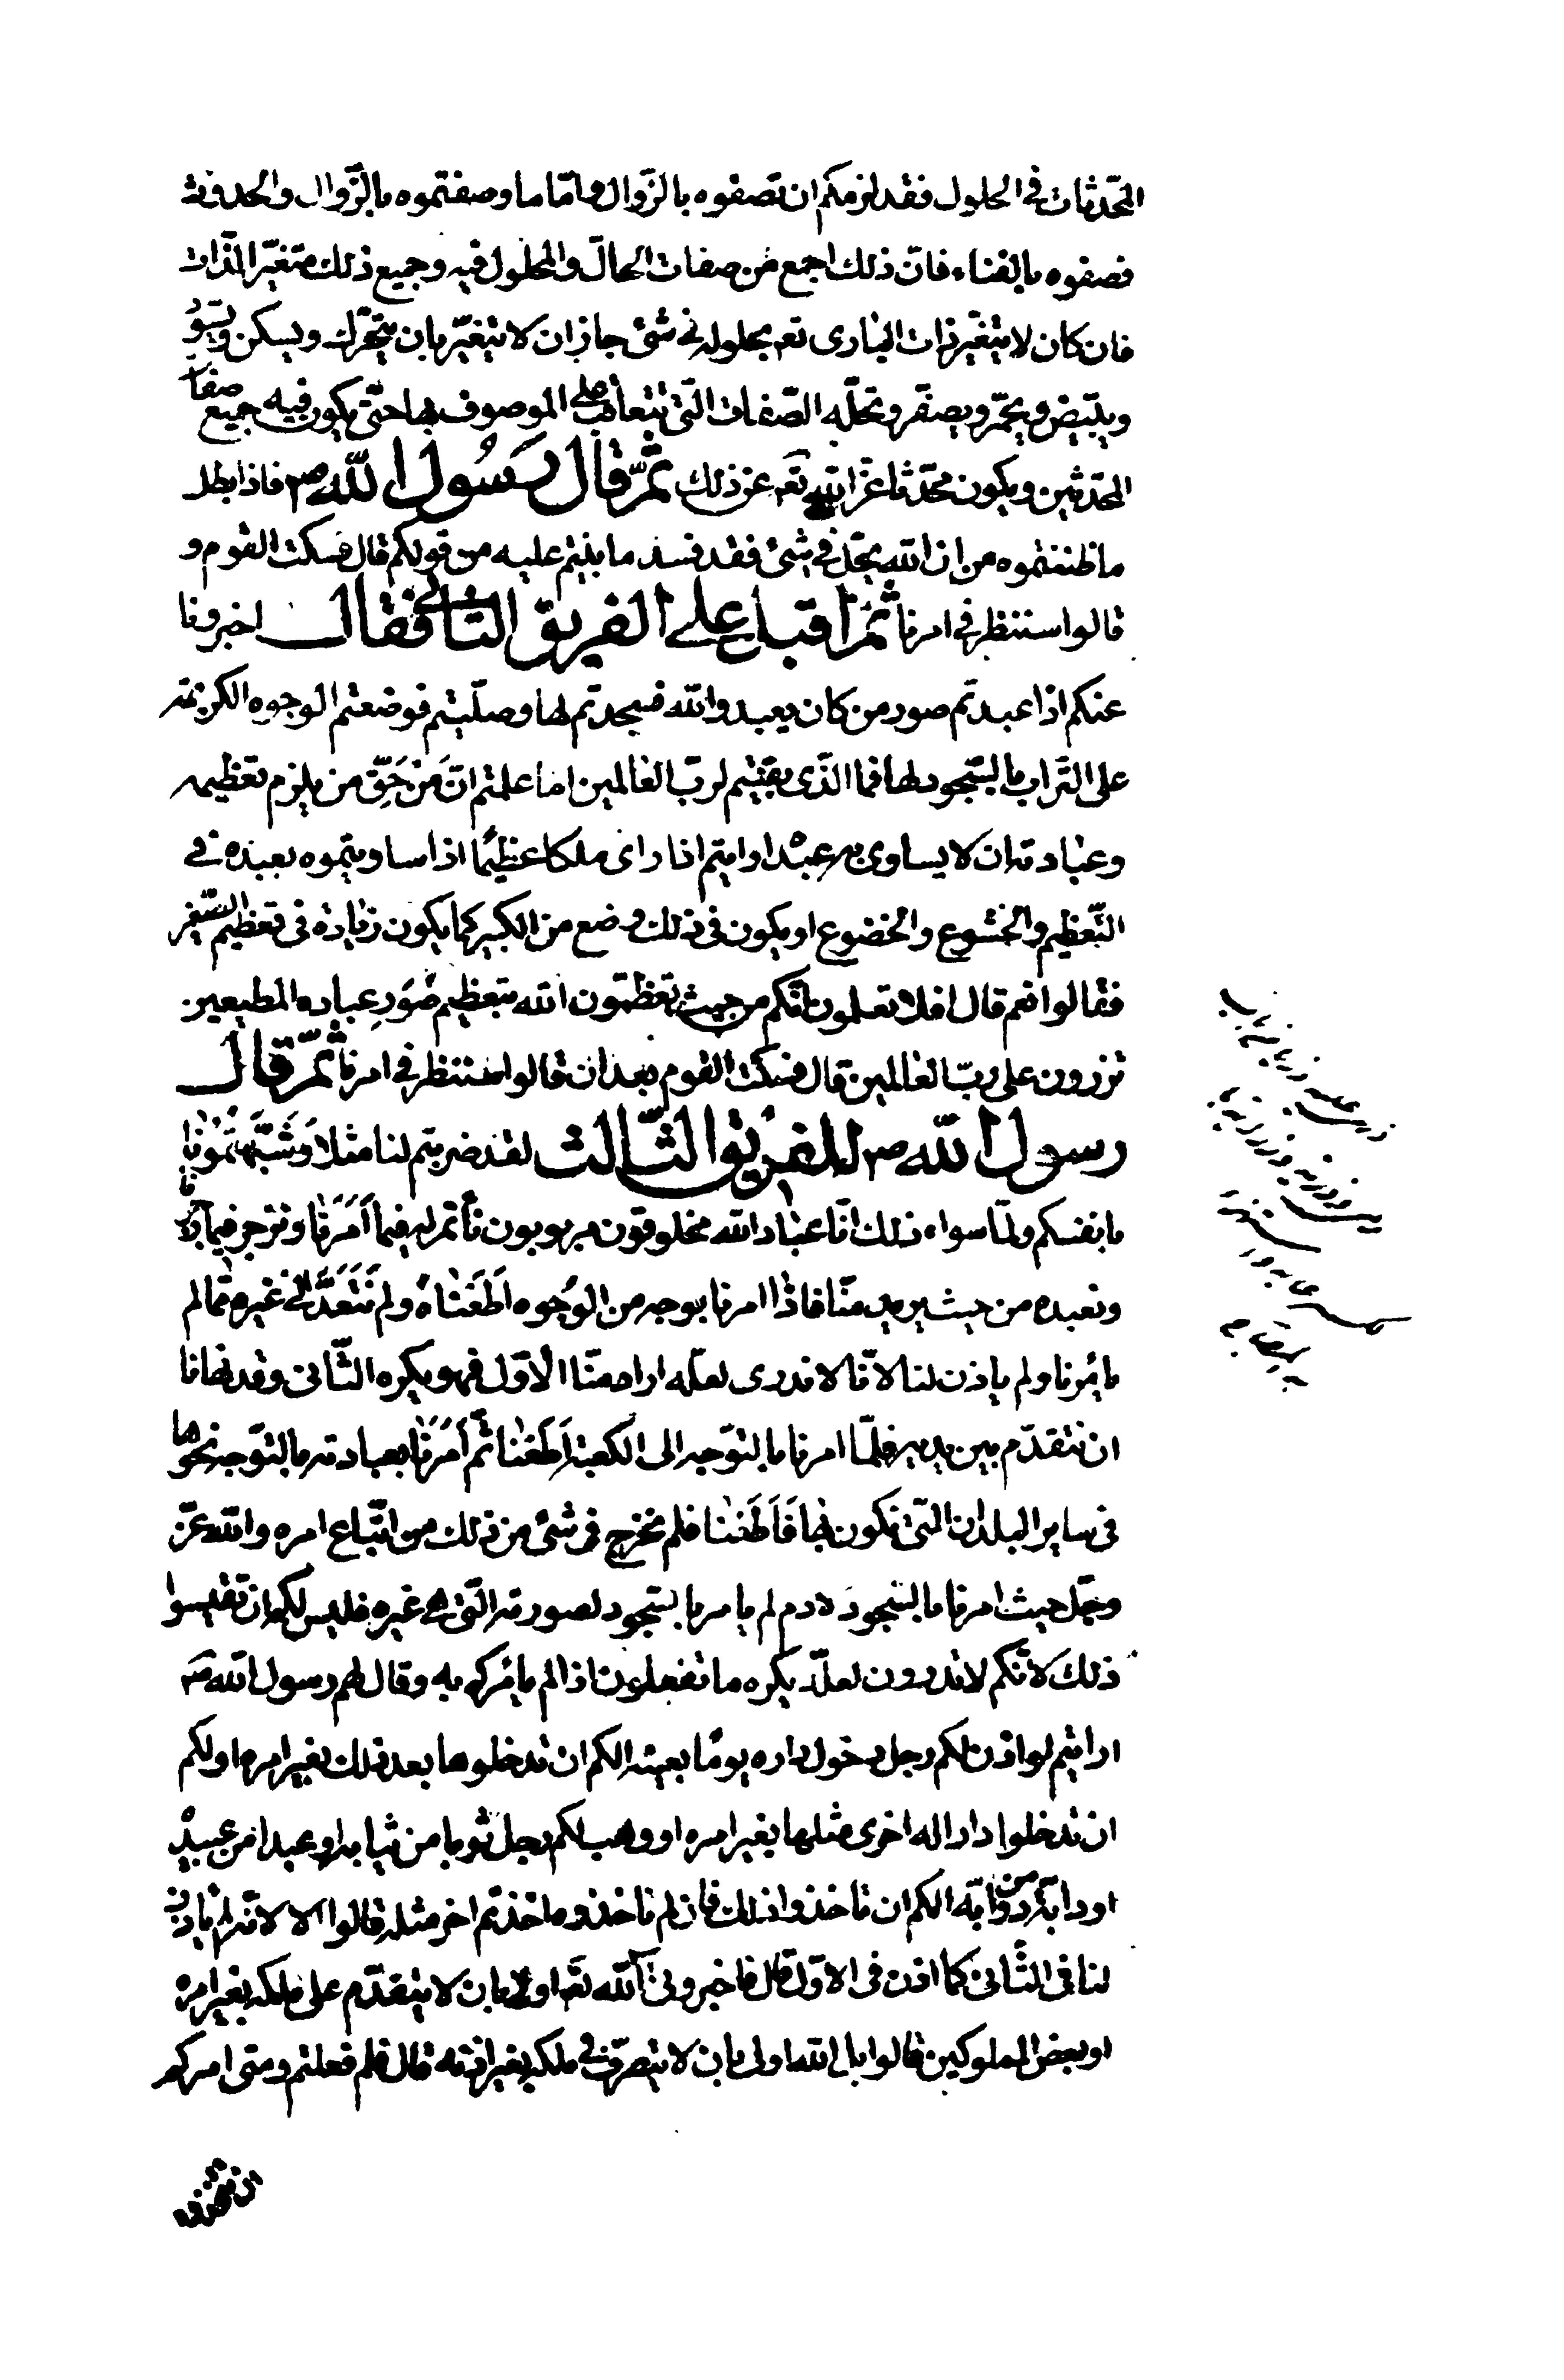 المحدثات في الحلول فقد لزمكم ان تصفوه بالزّوال و امّا ما وصفتموه بالزّوال والحدوث
فصفوه بالفناء فانّ ذلك اجمع من صفات الحالّ والمحلول فيه وجميع ذلك متغيّر الذات
فان كان لا يتغيّر ذات الباری تع بحلوله فی شئ جاز ان لا يتغيّر بان يتحرّك ويسكن ويسوّد
ويبيّض ويحمّر ويصفّر وتحلّه الصّفات الّتی تتعاقب علی الموصوف بها حتّی يكون فيه جميع صفات
المحدثين ويكون محدثا عزّ الله تع عن ذلك ثمّ قال رسول الله ص فاذا بطل
ما ظننتموه من ان الله يحلّ فی شئ فقد فسد ما بنيتم عليه من قولكم قال فسكت القوم و
قالوا سننظر فی امرنا ثمّ اقبل علی الفريق الثانی فقال اخبرونا
عنكم اذا عبدتم صور من كان يعبد والله فسجدتم لها وصلّيتم فوضعتم الوجوه الكريمة
علی التّراب بالسّجود لها فما الّذی بقيتم لربّ العالمين اما علمتم انّ من حقّ من يلزم تعظيمه
وعبادته ان لا يساوی به عبدا ارايتم اذا رای ملكا عظيما اذا ساويتموه بعبده فی
التّعظيم والخشوع والخضوع او يكون فی ذلك وضع من الكبير كما يكون زيادة فی تعظيم الصّغير
فقالوا نعم قال افلا تعلمون انّكم من حيث تعظّمون الله بتعظيم صور عباده المطيعين
تزرون علی ربّ العالمين قال فسكت القوم بعد ان قالوا سننظر فی امرنا ثمّ قال
رسول الله ص للفريق الثّالث لقد ضربتم لنا مثلا وشبّهتمونا
بانفسكم ولسنا سواء ذلك انّا عباد الله مخلوقون مربوبون نأتمر له فيما امرنا وننزجر فيما
ونعبده من حيث يريده منّا فاذا امرنا بوجه من الوجوه اطعناه ولم نتعدّ الی غيره ممّا لم
يأمرنا ولم ياذن لنا لانّا لا ندری لعلّه اراد منّا الاوّل فهو يكره الثّانی وقد نهانا
ان نتقدّم بين يديه فلمّا امرنا بالتوجّه الی الكعبة اطعنا ثمّ امرنا بعبادته بالتوجّه نحوها
فی ساير البلدان الّتی نكون بها فاطعنا فلم نخرج فی شئ من ذلك من اتّباع امره والله عزّ
وجلّ حيث امرنا بالسّجود لادم لم يامرنا بسّجود لصورته الّتی هی غيره فليس لكم ان تقيسوا
ذلك لانّكم لا تدرون لعلّه يكره ما تفعلون اذا لم يأمركم به وقال لهم رسول الله ص
ارايتم لو اذن لكم رجل دخول داره يوما بعينه الكم ان تدخلوها بعد ذلك بغير امره او لكم
ان تدخلوا دارا له اخری مثلها بغير امره او وهب لكم رجل ثوبا من ثيابه او عبدا من عبيده
او دابّة من دوابّه الكم ان تاخذوا ذلك فان لم تاخذوه اخذتم اخر مثله قالوا لا لانّه لم ياذن
لنا فی الثّانی كما اذن فی الاوّل قال فاخبرونی الله تع اولی بان لا يتقدّم علی ملكه بغير امره
او بعض المملوكين قالوا بل الله اولی بان لا يتصرّف فی ملكه بغير اذنه قال فلم فعلتم ومتی امركم